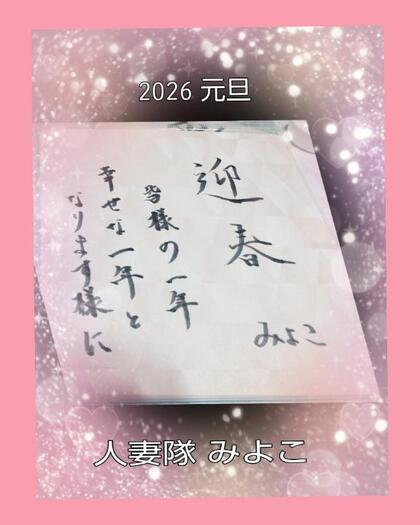 2026 元旦
迎春
皆様の一年
幸せな一年と
なります様に
みよこ
人妻隊 みよこ